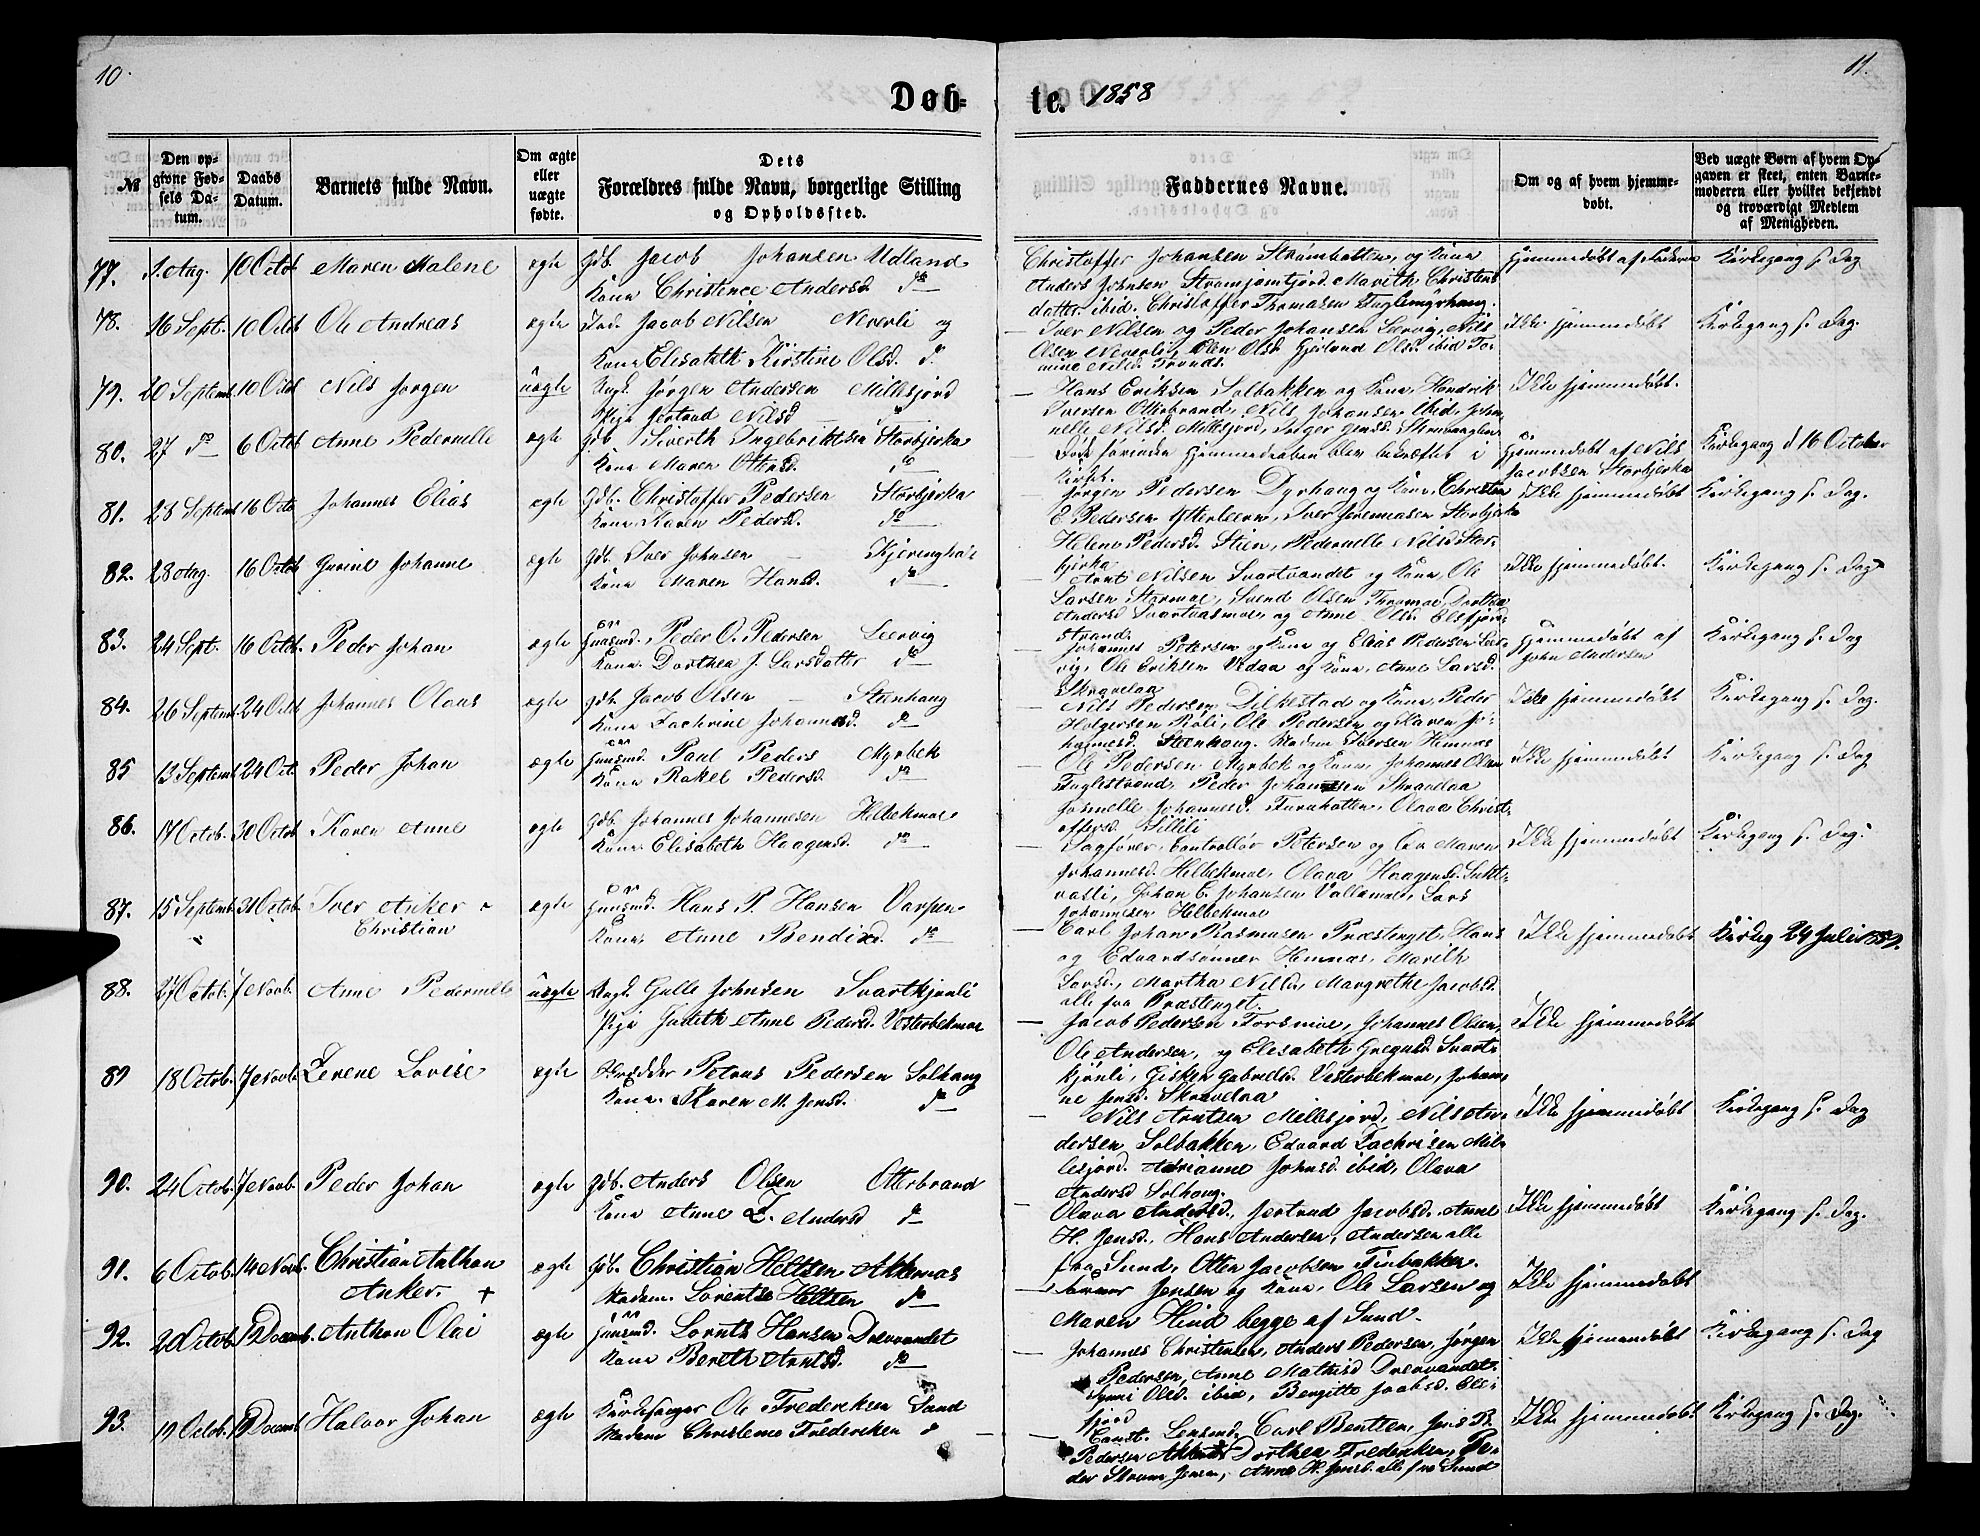 10.
11.
Døb-
te. 1858
№
Den op-
givne Fød-
sels Da-
tum.
Daabs
Datum.
Barnets fulde Navn.
Om ægte
eller
uægte
fødte.
Dets
Forældres fulde Navn, borgerlige Stilling
og Opholdssted.
Faddernes Navne.
Om og af hvem hjemme-
døbt.
Ved uægte Børn af hvem Op-
gaven er skeet, enten Barne-
moderen eller hvilket bekjendt
og troværdigt Medlem
af Menigheden.
77. 1. Aug. 10 Octob Maren Malene ægte Gdb. Jacob Johansen Udland
Kone Christence Andersd. do
Christoffer Johansen Strømbotten, og Kone
Anders Johnsen Marith Christens
datter ibid. Christoffer Thomasen Fuglemyrhaug.
Hjemmedøbt af Faderen Kirkegang s. Dag
78. 16 Sept. 10 Octob Ole Andreas ægte Ind. Jacob Nilsen Neverli og
Kone Elisabeth Kirstine Olsd. do.
Iver Nilsen og Peder Johansen Leervig, Nils
Olsen Neverli, Olsd. ibid
Ikke hjemmedøbt Kirkegang s. Dag.
79. 20 Septemb 10 Octob Nils Jørgen uægte Ungk. Jørgen Andersen Millesjord
Pige Gertrud Nilsd do
Hans Eriksen Solbakken og Kone, Hendrik
Iversen Otterbrand, Nils Johansen ibid,
Nilsd. Millesjord,
Ikke hjemmedøbt.
80. 27 do 6 Octob Anne Pedernelle ægte Gdb. Siverth Ingebrigtsen Storbjerka
Kone Maren Ottersd. do
Døde førinden Hjemmedaaben blev bekræftet i
Kirken.
Hjemmedøbt af Nils
Jacobsen Storbjerka
Kirkegang d 16 October
81. 23 Septemb 16 Octo Johannes Elias ægte Gdb. Christoffer Pedersen Storbjerka
Kone Karen Pedersd. do
Jørgen Pedersen Dyrhaug og Kone, Christen
E. Pedersen Ytterleeren, Iver Storbjerka
Helene Pedersd. Stien, Pedernelle Nilsd Stor-
bjerka
Ikke hjemmedøbt Kirkegang s. Dag.
82. 28 Aug. 16 Octob Gurine Johanne ægte Gdb. Iver Johnsen Kjeringhals
Kone Maren Hansd. do
Arnt Nilsen Svartvandet og Kone, Ole
Larsen Stormoe, Svend Olsen Dorthea
Andersd Svartvasmoe, og Anne Olsd. Elsfjord-
strand.
Ikke hjemmedøbt. Kirkegang s. Dag
83. 24 Sept. 16 Octob. Peder Johan ægte Huusmd. Peder O. Pedersen Leervig
Kone Dorthea J. Larsdatter do
Johannes Petersen og Kone og Elias Pedersen Leer-
vig, Ole Eriksen Vedaa og Kone, Anne Larsd.
Skravelaa
Hjemmedøbt af
John Andersen
Kirkegang s. Dag
84. 26 Septemb. 24 Octob Johannes Olaus ægte Gdb. Jacob Olsen Steenhaug
Kone Zachrine Johannesd. do
Nils Pedersen Dilkestad og Kone, Peder
Holgersen Røli, Ole Pedersen og Karen Jo-
hannesd. Steenhaug. Madm Iversen Hemnæs
Ikke hjemmedøbt Kirkegang s. Dag.
85 13 Septemb 24 Oct. Peder Johan ægte Huusmd. Paul Peders Myrbek
Kone Rakel Pedersd. do
Ole Pedersen Myrbek og Kone, Johannes Olsen
Fuglestrand, Peder Johannesen Skravelaa
Johannesd. Furuhatten, Olava Christ-
offersd. Lillili
Ikke hjemmedøbt Kirkegang s. Dag
86. 17 Octob. 30 Octob Karen Anne ægte Gdb. Johannes Johannesen Helbekmoe
Kone Elisabeth Haagensd. do
Sagfører Controllør Petersen og Maren
Johannesd. Helbekmoe, Olava Haagensd.
Johan C. Johansen Vallamoe, Lars
Johannesen Helbekmoe
Ikke hjemmedøbt Kirkegang s. Dag.
87. 15 Septemb 31 Octob. Iver Anker
Christian
ægte Huusmd. Hans P. Hansen Varpen
Kone Anne Bendixd. do
Carl Johan Rasmusen Præstengt, Hans
og Edvardsønner Hemnæs, Marith
Larsd., Martha Nilsd., Margrethe Jacobsd.
alle fra Præstenget.
Ikke hjemmedøbt Kirkeg 24 Juli 1859.
88. 27 Octob. 7 Novb. Anne Pedernelle uægte Ungk. Gulle Johnsen Svartkjønli
Pige Judith Anne Pedersd. Vesterbekmoe
Jacob Pedersen Forsmoe, Johannes Olsen,
Ole Andersen, og Elisabeth Gregusd. Svart-
kjønli, Gisken Gabrielsd. Vesterbekmoe, Johan-
ne Jensd. Skravelaa
Ikke hjemmedøbt
89 18 Octob. 7 Novb. Zerene Lovise ægte Petrus Pedersen Solhaug
Kone Karen M. Jensd. do
Nils Arntsen Millesjord, Nils An-
dersen Solbakken, Edvard Zachrisen Mil-
lesjord. Adrianne Johnsd. ibid, Olava
Andersd Solhaug.
Ikke hjemmedøbt Kirkegang s. Dag
90. 24 Octob. 7 Novb. Peder Johan ægte Gdb. Anders Olsen Otterbrand
Kone Anne Z. Andersd do
Olava Andersd., Gertrud Jacobsd. Anne
H. Jensd., Hans Andersen, Andersen alle
fra Sund, Otter Jacobsen Finbakken.
Ikke hjemmedøbt Kirkegang s. Dag.
91. 6 Octob. 14 Novb. Christian Aulhan
Anker. +
ægte Gdb. Christian Heltzen Akkernæs
Madam Lorentse Heltzen do
Jensen og Kone, Ole Larsen og
Maren Hind begge af Sund.
Ikke hjemmedøbt
92. 2 Octob. 12 Decemb. Anthon Olai ægte Huusmd. Lornts Hansen Drevvandet
Kone Bereth Arntsd. do
Johannes Christensen, Anders Pedersen, Jørgen
Pedersen, Anne Mathisd Drevvandet.
Olsd. ibid, Bergitte Jacobsd. Els-
fjord
Ikke hjemmedøbt Kirkegang s. Dag
93. 19 Octob. 19 Decemb Halvor Johan ægte Kirkesanger Ole Frederiksen Sund
Madame Christense Frederiksen do
Const. Lensmd. Carl Bentzen, Jens P.
Pedersen Akkernes Dorthea Frederiksen, Pe-
der Strøm Jensen, Anne H. Jensd. alle fra Sund
Ikke hjemmedøbt Kirkegang s. Dag.